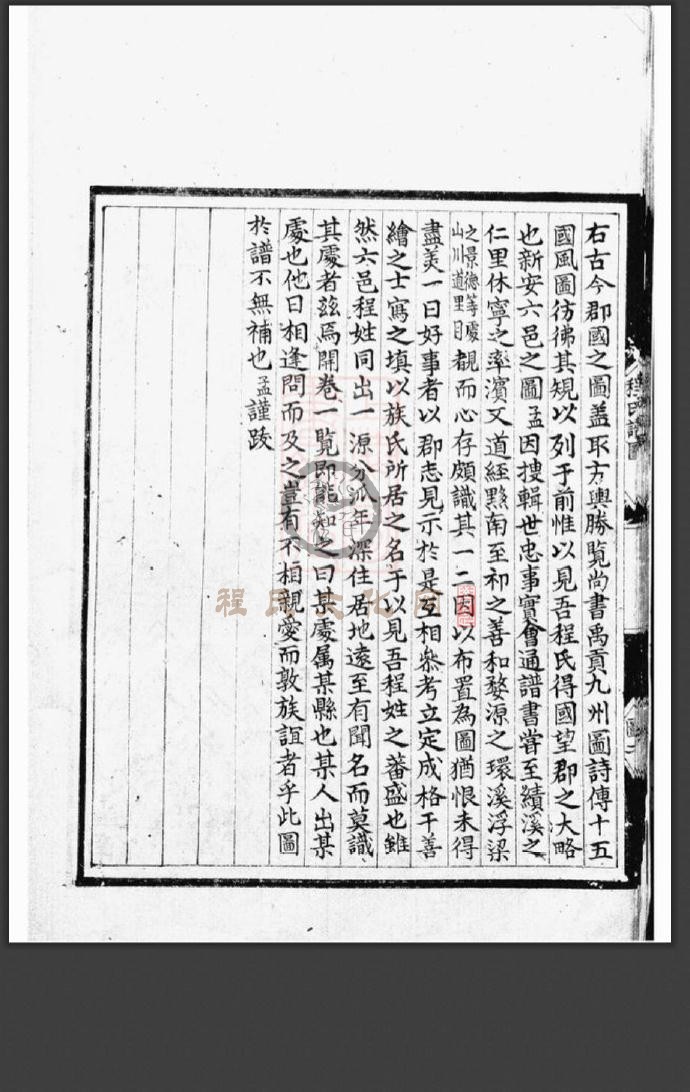 右古今郡國之圖盖取方輿勝覧尚書禹貢九州圖詩傳十五
國風圖彷彿其規以列于前惟以見吾程氏得國望郡之大略
也新安六邑之圖孟因捜輯世忠事實會通譜書嘗至績溪之
仁里休寧之率濱又道經黟南至祁之善和婺源之環溪浮梁
之景德等處
山川道里目
覩而心存頗識其一二因以布置為圖猶恨未得
盡美一日好事者以郡志見示於是互相叅考立定成格干善
繪之士寫之填以族氏所居之名于以見吾程姓之蕃盛也雖
然六邑程姓同出一源分派年深住居地逺至有聞名而莫識
其處者兹焉開卷一覧即能知之曰某處属某縣也某人出某
處也他日相逢問而及之豈有不相親愛而敦族誼者乎此圖
扵譜不無補也孟謹跋
程氏譜圖
圖二
程氏文化